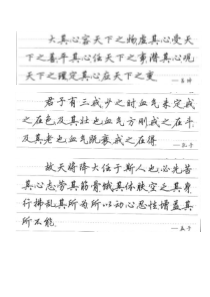 大其心容天下之物虚其心受天
下之善平其心论天下之事潜其心观
天下之理定其心应天下之变
—吕坤
君子有三戒少之时血气未定戒
之在色及其壮也血气方刚戒之在斗
及其老也血气既衰戒之在得
—孔子
故天将降大任于斯人也必先苦
其心志劳其筋骨饿其体肤空乏其身
行拂乱其所为所以动心忍性增益其
所不能
—孟子